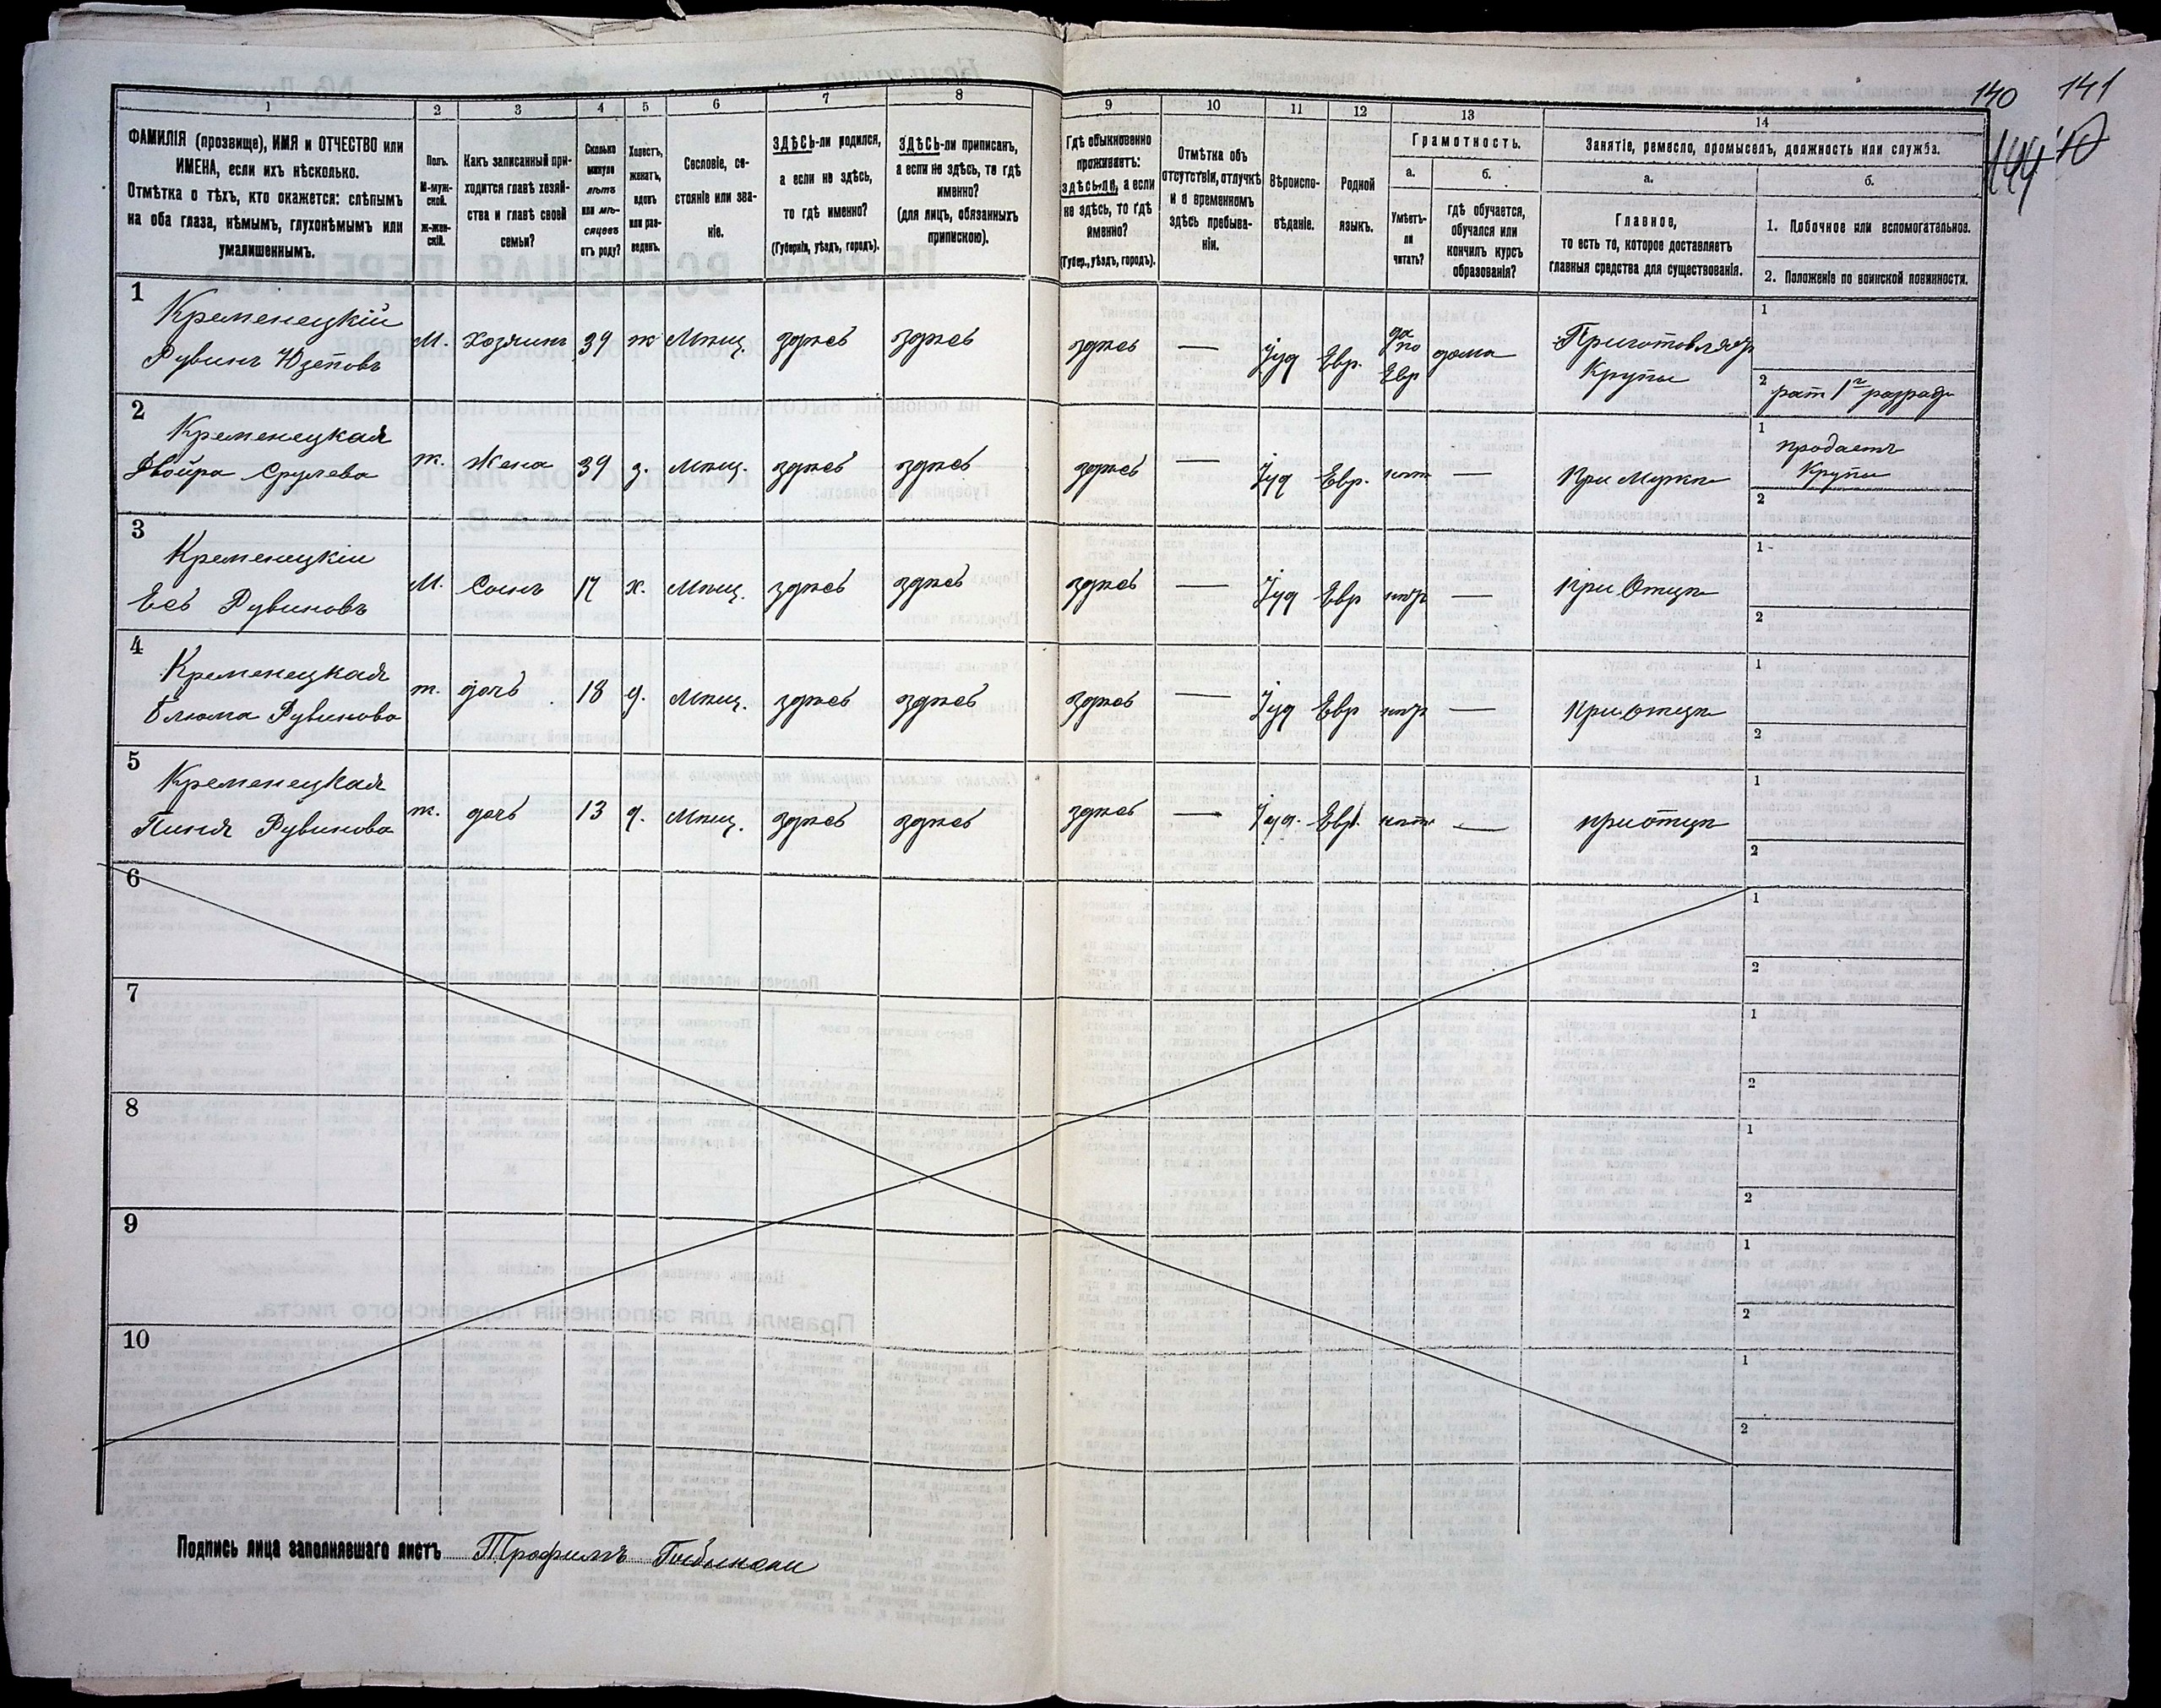 140 141
144 10
1 2 3 4 5 6 7 8 9 10 11 12 13 14
ФАМИЛІЯ (прозвище), ИМЯ и ОТЧЕСТВО или
ИМЕНА, если ихъ нѣсколько.
Отмѣтка о тѣхъ, кто окажется: слѣпымъ
на оба глаза, нѣмымъ, глухонѣмымъ или
умалишеннымъ.
Полъ.
М-муж-
ской.
Ж-жен-
скій.
Какъ записанный при-
ходится главѣ хозяй-
ства и главѣ своей
семьи?
Сколько
минуло
лѣтъ
или мѣ-
сяцевъ
отъ роду?
Холостъ,
женатъ,
вдовъ
или раз-
веденъ.
Сословіе, со-
стояніе или зва-
ніе.
ЗДѢСЬ-ли родился,
а если не здѣсь,
то гдѣ именно?
(Губернія, уѣздъ, городъ).
ЗДѢСЬ-ли приписанъ,
а если не здѣсь, то гдѣ
именно?
(для лицъ, обязанныхъ
припискою).
Гдѣ обыкновенно
проживаетъ:
здѣсь-ли, а если
не здѣсь, то гдѣ
именно?
(Губер., уѣздъ, городъ).
Отмѣтка объ
отсутствіи, отлучкѣ
и о временномъ
здѣсь пребыва-
ніи.
Вѣроиспо-
вѣданіе.
Родной
языкъ.
Грамотность.
а.
Умѣетъ-
ли
читать?
б.
гдѣ обучается,
обучался или
кончилъ курсъ
образованія?
Занятіе, ремесло, промыселъ, должность или служба.
а.
Главное,
то есть то, которое доставляетъ
главныя средства для существованія.
б.
1. Побочное или вспомогательное.
2. Положеніе по воинской повинности.
1
Кременецкій
Рувинъ Юзеповъ
М. Хозяинъ 39 ж Мѣщ. здѣсь здѣсь здѣсь — Іуд Евр. да по Евр дома Приготовляетъ Крупы
1
2 рат 1го разряда
2
Кременецкая
Двойра Срулева
ж. Жена 39 з. Мѣщ. здѣсь здѣсь здѣсь — Іуд Евр. нѣтъ — При Мужѣ
1 продаетъ Крупы
2
3
Кременецкій
Есь Рувиновъ
М. Сынъ 17 х. Мѣщ. здѣсь здѣсь здѣсь — Іуд Евр нѣтъ — При Отцѣ
1
2
4
Кременецкая
Блюма Рувинова
ж. дочь 18 д. Мѣщ. здѣсь здѣсь здѣсь — Іуд Евр нѣтъ — При отцѣ
1
2
5
Кременецкая
Пиня Рувинова
ж. дочь 13 д. Мѣщ. здѣсь здѣсь здѣсь — Іуд. Евр. нѣтъ — при отцѣ
1
2
6
1
2
7
1
2
8
1
2
9
1
2
10
1
2
Подпись лица заполнявшаго листъ Трофимъ